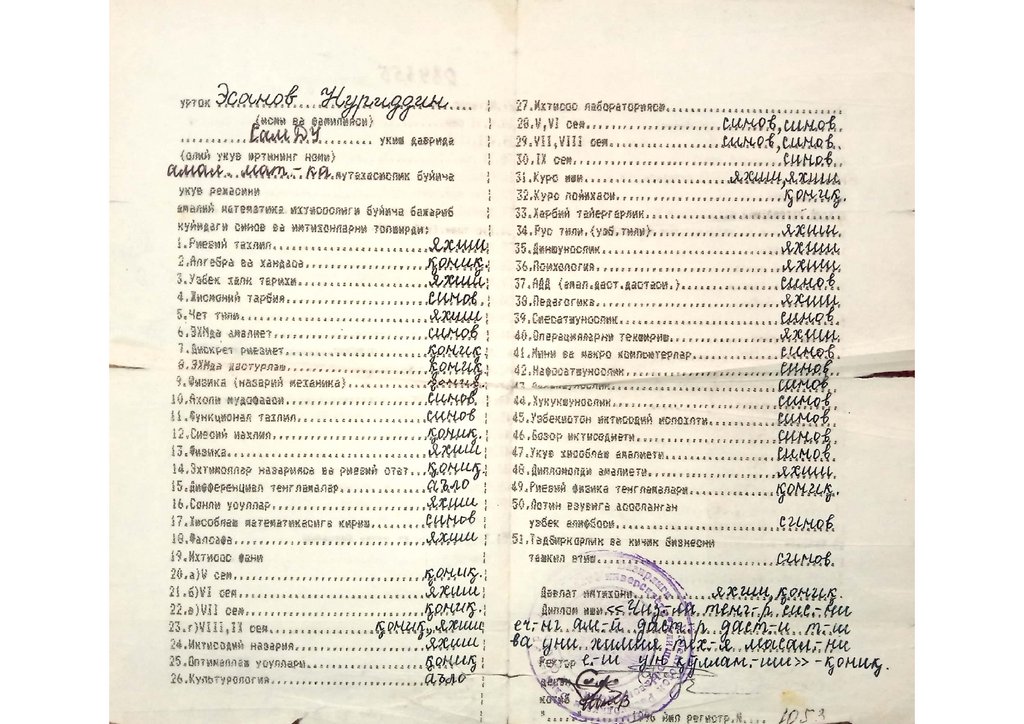 уртоқ Эсанов Нуриддин
(исми ва фамилияси)
СамДУ укиш даврида
(олий укув юртининг номи)
амал. мат.-ка мутахассислик буйича
укув режасини
амалий математика ихтисослиги буйича бажариб
куйидаги синов ва имтихонларни топширди:
1.Риёзий тахлил яхши
2.Алгебра ва хандаса қониқ.
3.Узбек халк тарихи яхши
4.Жисмоний тарбия синов
5.Чет тили яхши
6.ЭХМда амалиёт синов
7.Дискрет риёзиёт қониқ
8.ЭХМда дастурлаш қониқ
9.Физика (назарий механика)
10.Ахоли мудофааси синов
11.Функционал тахлил синов
12.Сиёсий қониқ.
13.Физика яхши
14.Эхтимоллар назарияси ва риёзий стат. қониқ.
15.Дифференциал тенгламалар аъло
16.Сонли усуллар яхши
17.Хисоблаш математикасига кириш синов
18.Фалсафа яхши
19.Ихтисос фани
20.а)V сем. қониқ.
21.б)VI сем яхши
22.в)VII сем қониқ.
23.г)VIII,IX сем қониқ, яхши
24.Иктисодий назария яхши
25.Оптималлаш усуллари қониқ
26.Культурология аъло
27.Ихтисос лабораторияси
28.V,VI сем синов, синов
29.VII,VIII сем синов, синов
30.IX сем синов
31.Курс иши яхши, яхши
32.Курс лойихаси қониқ.
33.Харбий тайёргарлик
34.Рус тили.(узб.тили) яхши
35.Диншунослик яхши
36.Психология яхши
37.АДД (амал.даст.дастаси.) синов
38.Педагогика яхши
39.Сиёсатшунослик синов
40.Операцияларни текшириш яхши
41.Мини ва макро компьютерлар синов
42.Нафосатшунослик синов
синов
44.Хукукшунослик синов
45.Узбекистон иктисодий ислохоти синов
46.Бозор иктисодиёти синов
47.Укув хисоблаш амалиёти синов
48.Дипломолди амалиёти яхши
49.Риёзий физика тенгламалари қониқ.
50.Лотин ёзувига асосланган
узбек алифбоси синов
51.Тадбиркорлик ва кичик бизнесни
ташкил этиш синов
Давлат имтихони яхши, қониқ.
Диплом иши «Чиз-ли тенг-р сис-ни
еч-нг ам-й даст-р даст-и т-ш
ва уни химия тех-я масал-ни
Ректор е-ш уч қуллам-ши»-қониқ.
декан
котиб
регистр.N 1053